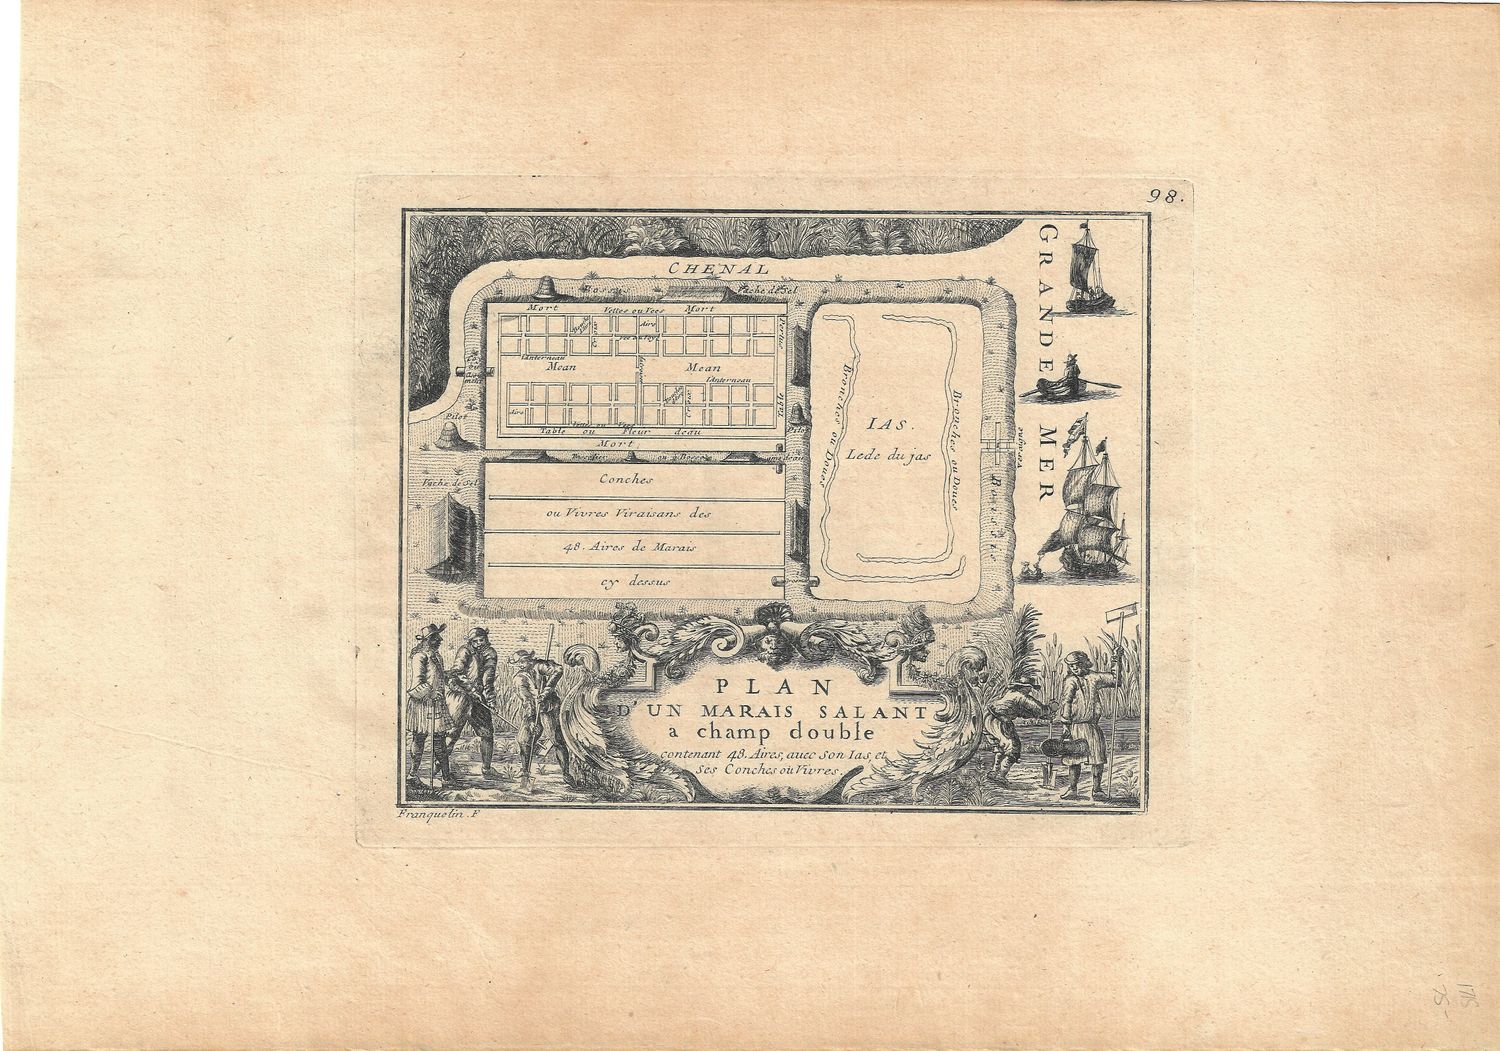 98.
CHENAL
GRANDE MER
Bossis
Vache de Sel
Mort
Vettes ou Vees
Mort
Aire
Croix
Anterneau
Mean
Mean
Anterneau
Aire
Croix
Table ou Fleur deau
Mort
Pilot
Pilo
Vache de Sel
Conches
ou Vivres Viraisans des
48. Aires de Marais
cy dessus
IAS.
Lede du jas
Bronches ou Doues
Bronches ou Doues
Bossis
PLAN
D'UN MARAIS SALANT
a champ double
contenant 48. Aires, avec son Ias, et
ses Conches ou Vivres.
Franquelin. F